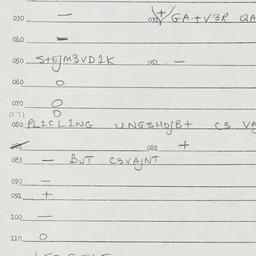 030 — GA.+V3R QA
040 —
050 S+EJM3VD1K 052 —
060 O
070 O
071 O
080 PLICLING UNG3HDJB+ C3 VA
082 +
083 — BUT C3VAJNT
090 —
091 +
100 —
110 O